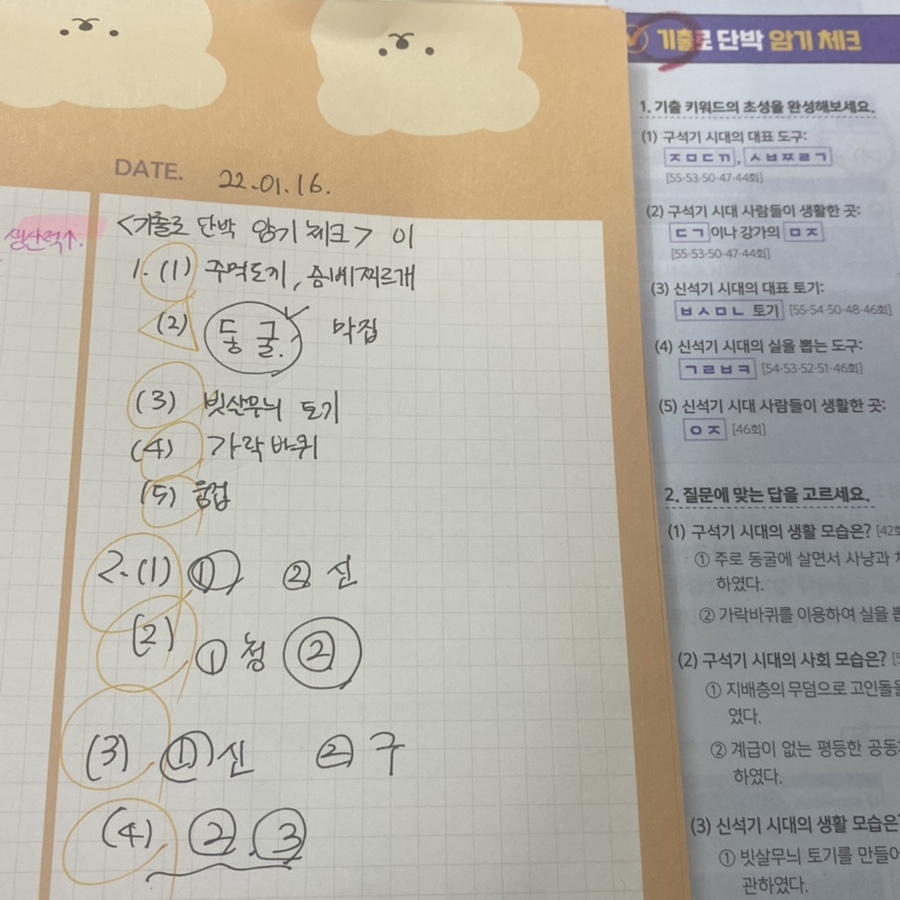 DATE. 22.01.16.
생산적↑.
<기출로 단박 암기 체크> 01
1. (1) 주먹도끼, 슴베찌르개
(2) 동굴. 막집
(3) 빗살무늬 토기
(4) 가락바퀴
(5) 움집
2. (1) ① ② 신
(2) ① 청 ②
(3) ① 신 ② 구
(4) ② ③
기출로 단박 암기 체크
1. 기출 키워드의 초성을 완성해보세요.
(1) 구석기 시대의 대표 도구:
ㅈㅁㄷㄲ, ㅅㅂㅉㄹㄱ
[55·53·50·47·44회]
(2) 구석기 시대 사람들이 생활한 곳:
ㄷㄱ이나 강가의 ㅁㅈ
[55·53·50·47·44회]
(3) 신석기 시대의 대표 토기:
ㅂㅅㅁㄴ 토기 [55·54·50·48·46회]
(4) 신석기 시대의 실을 뽑는 도구:
ㄱㄹㅂㅋ [54·53·52·51·46회]
(5) 신석기 시대 사람들이 생활한 곳:
ㅇㅈ [46회]
2. 질문에 맞는 답을 고르세요.
(1) 구석기 시대의 생활 모습은? [42회
① 주로 동굴에 살면서 사냥과
하였다.
② 가락바퀴를 이용하여 실을
(2) 구석기 시대의 사회 모습은?
① 지배층의 무덤으로 고인돌을
였다.
② 계급이 없는 평등한 공동
하였다.
(3) 신석기 시대의 생활 모습은
① 빗살무늬 토기를 만들어
관하였다.